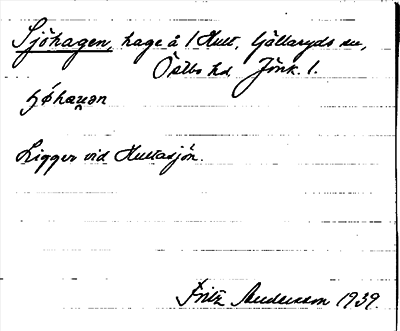 Sjöhagen, hage å 1 Hult, Gällaryds sn,
Östbo hd Jönk. l.
Ligger vid Hultasjön.
Fritz Andersson 1939